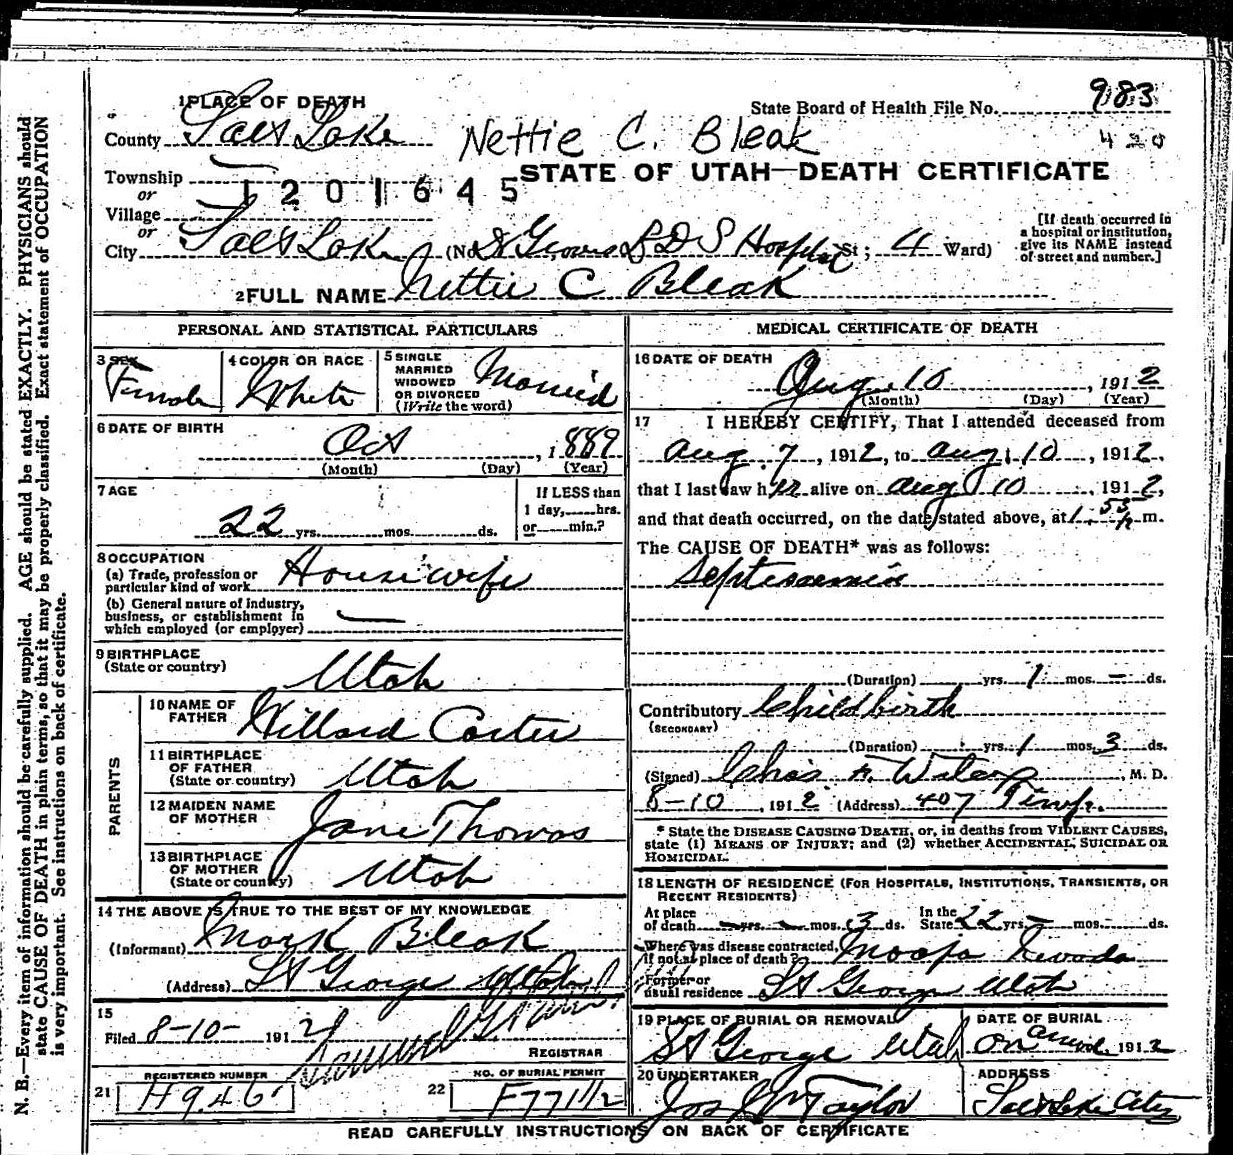 1 PLACE OF DEATH
State Board of Health File No. 983
County Salt Lake
Nettie C. Bleak
430
Township
1201645
STATE OF UTAH—DEATH CERTIFICATE
or
Village
or
City Salt Lake (No. LDS Hospital St; 4 Ward)
[If death occurred in
a hospital or institution,
give its NAME instead
of street and number.]
2 FULL NAME Nettie C Bleak
PERSONAL AND STATISTICAL PARTICULARS
3 SEX
Female
4 COLOR OR RACE
White
5 SINGLE
MARRIED
WIDOWED
OR DIVORCED
(Write the word)
Married
6 DATE OF BIRTH
Oct , 1889
(Month) (Day) (Year)
7 AGE
22 yrs. mos. ds.
If LESS than
1 day, hrs.
or min.?
8 OCCUPATION
(a) Trade, profession or
particular kind of work Housewife
(b) General nature of industry,
business, or establishment in
which employed (or employer) —
9 BIRTHPLACE
(State or country)
Utah
PARENTS
10 NAME OF
FATHER
Willard Carter
11 BIRTHPLACE
OF FATHER
(State or country) Utah
12 MAIDEN NAME
OF MOTHER
Jane Thomas
13 BIRTHPLACE
OF MOTHER
(State or country) Utah
14 THE ABOVE IS TRUE TO THE BEST OF MY KNOWLEDGE
(Informant) Mark Bleak
(Address) St George Utah
15
Filed 8-10- 1912
REGISTRAR
REGISTERED NUMBER
21 H946
NO. OF BURIAL PERMIT
22 F771 1/2
MEDICAL CERTIFICATE OF DEATH
16 DATE OF DEATH
Aug. 10 , 1912
(Month) (Day) (Year)
17 I HEREBY CERTIFY, That I attended deceased from
Aug. 7, 1912, to Aug. 10, 1912,
that I last saw her alive on Aug 10, 1912,
and that death occurred, on the date stated above, at 1:55 P m.
The CAUSE OF DEATH* was as follows:
Septicaemia
(Duration) yrs. 1 mos. — ds.
Contributory Childbirth
(SECONDARY)
(Duration) yrs. 1 mos. 3 ds.
(Signed) Chas F. Wilcox, M. D.
8-10, 1912 (Address) 407
* State the DISEASE CAUSING DEATH, or, in deaths from VIOLENT CAUSES,
state (1) MEANS OF INJURY; and (2) whether ACCIDENTAL, SUICIDAL OR
HOMICIDAL.
18 LENGTH OF RESIDENCE (FOR HOSPITALS, INSTITUTIONS, TRANSIENTS, OR
RECENT RESIDENTS)
At place
of death — yrs. — mos. 3 ds.
In the
State 22 yrs. — mos. — ds.
Where was disease contracted,
if not at place of death? Moapa Nevada
Former or
usual residence St George Utah
19 PLACE OF BURIAL OR REMOVAL
St George Utah
DATE OF BURIAL
on 1912
20 UNDERTAKER
Jos Wm Taylor
ADDRESS
Salt Lake City
READ CAREFULLY INSTRUCTIONS ON BACK OF CERTIFICATE
N. B.—Every item of information should be carefully supplied. AGE should be stated EXACTLY. PHYSICIANS should
state CAUSE OF DEATH in plain terms, so that it may be properly classified. Exact statement of OCCUPATION
is very important. See instructions on back of certificate.